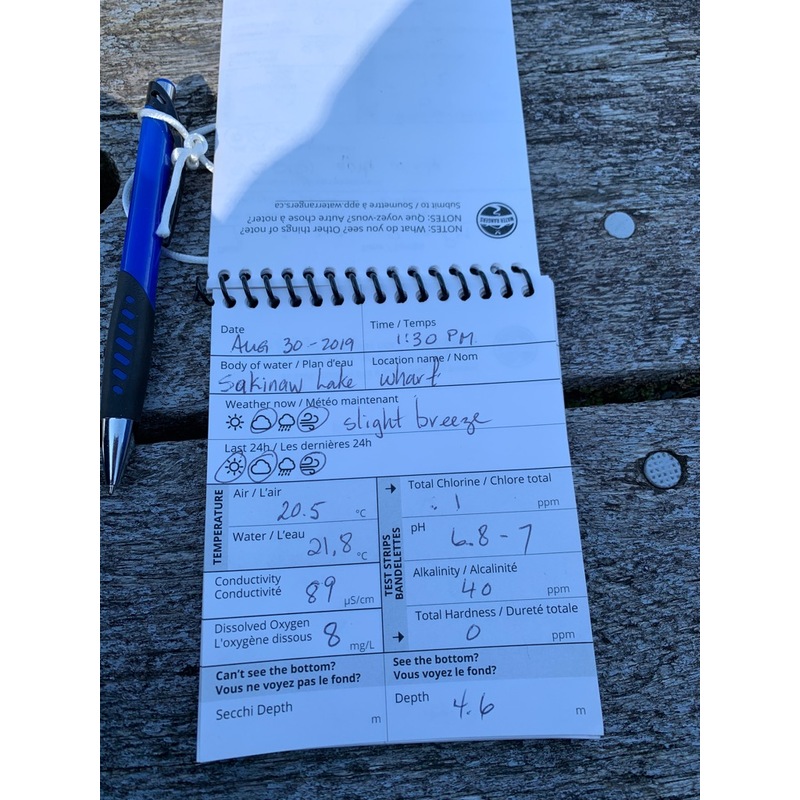 NOTES: What do you see? Other things of note?
NOTES: Que voyez-vous? Autre chose à noter?
Submit to / Soumettre à app.waterrangers.ca
WATER RANGERS
Date
Aug 30-2019
Time / Temps
1:30 PM
Body of water / Plan d'eau
Sakinaw Lake
Location name / Nom
wharf
Weather now / Météo maintenant
slight breeze
Last 24h / Les dernières 24h
TEMPERATURE
Air / L'air
20.5 °C
Water / L'eau
21,8 °C
Conductivity
Conductivité
89 µS/cm
Dissolved Oxygen
L'oxygène dissous
8 mg/L
Can't see the bottom?
Vous ne voyez pas le fond?
Secchi Depth
m
TEST STRIPS
BANDELETTES
Total Chlorine / Chlore total
.1 ppm
pH
6.8 - 7
Alkalinity / Alcalinité
40 ppm
Total Hardness / Dureté totale
0 ppm
See the bottom?
Vous voyez le fond?
Depth
4.6 m